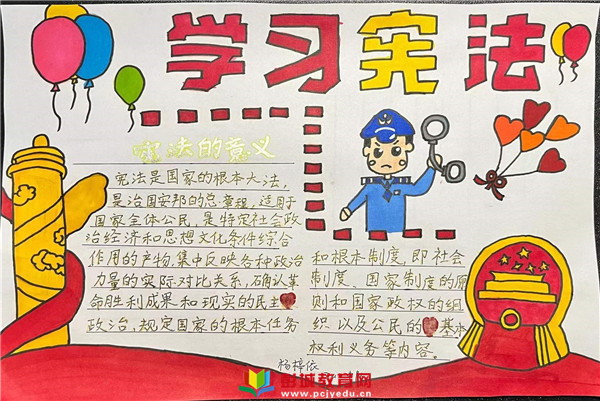 学习宪法
宪法的意义
宪法是国家的根本大法,
是治国安邦的总章程,适用于
国家全体公民,是特定社会政
治经济和思想文化条件综合
作用的产物,集中反映各种政治
力量的实际对比关系,确认革
命胜利成果和现实的民主
政治,规定国家的根本任务
和根本制度,即社会
制度、国家制度的原
则和国家政权的组
织以及公民的基本
权利义务等内容。
杨梓依
彭城教育网
www.pcjyedu.cn